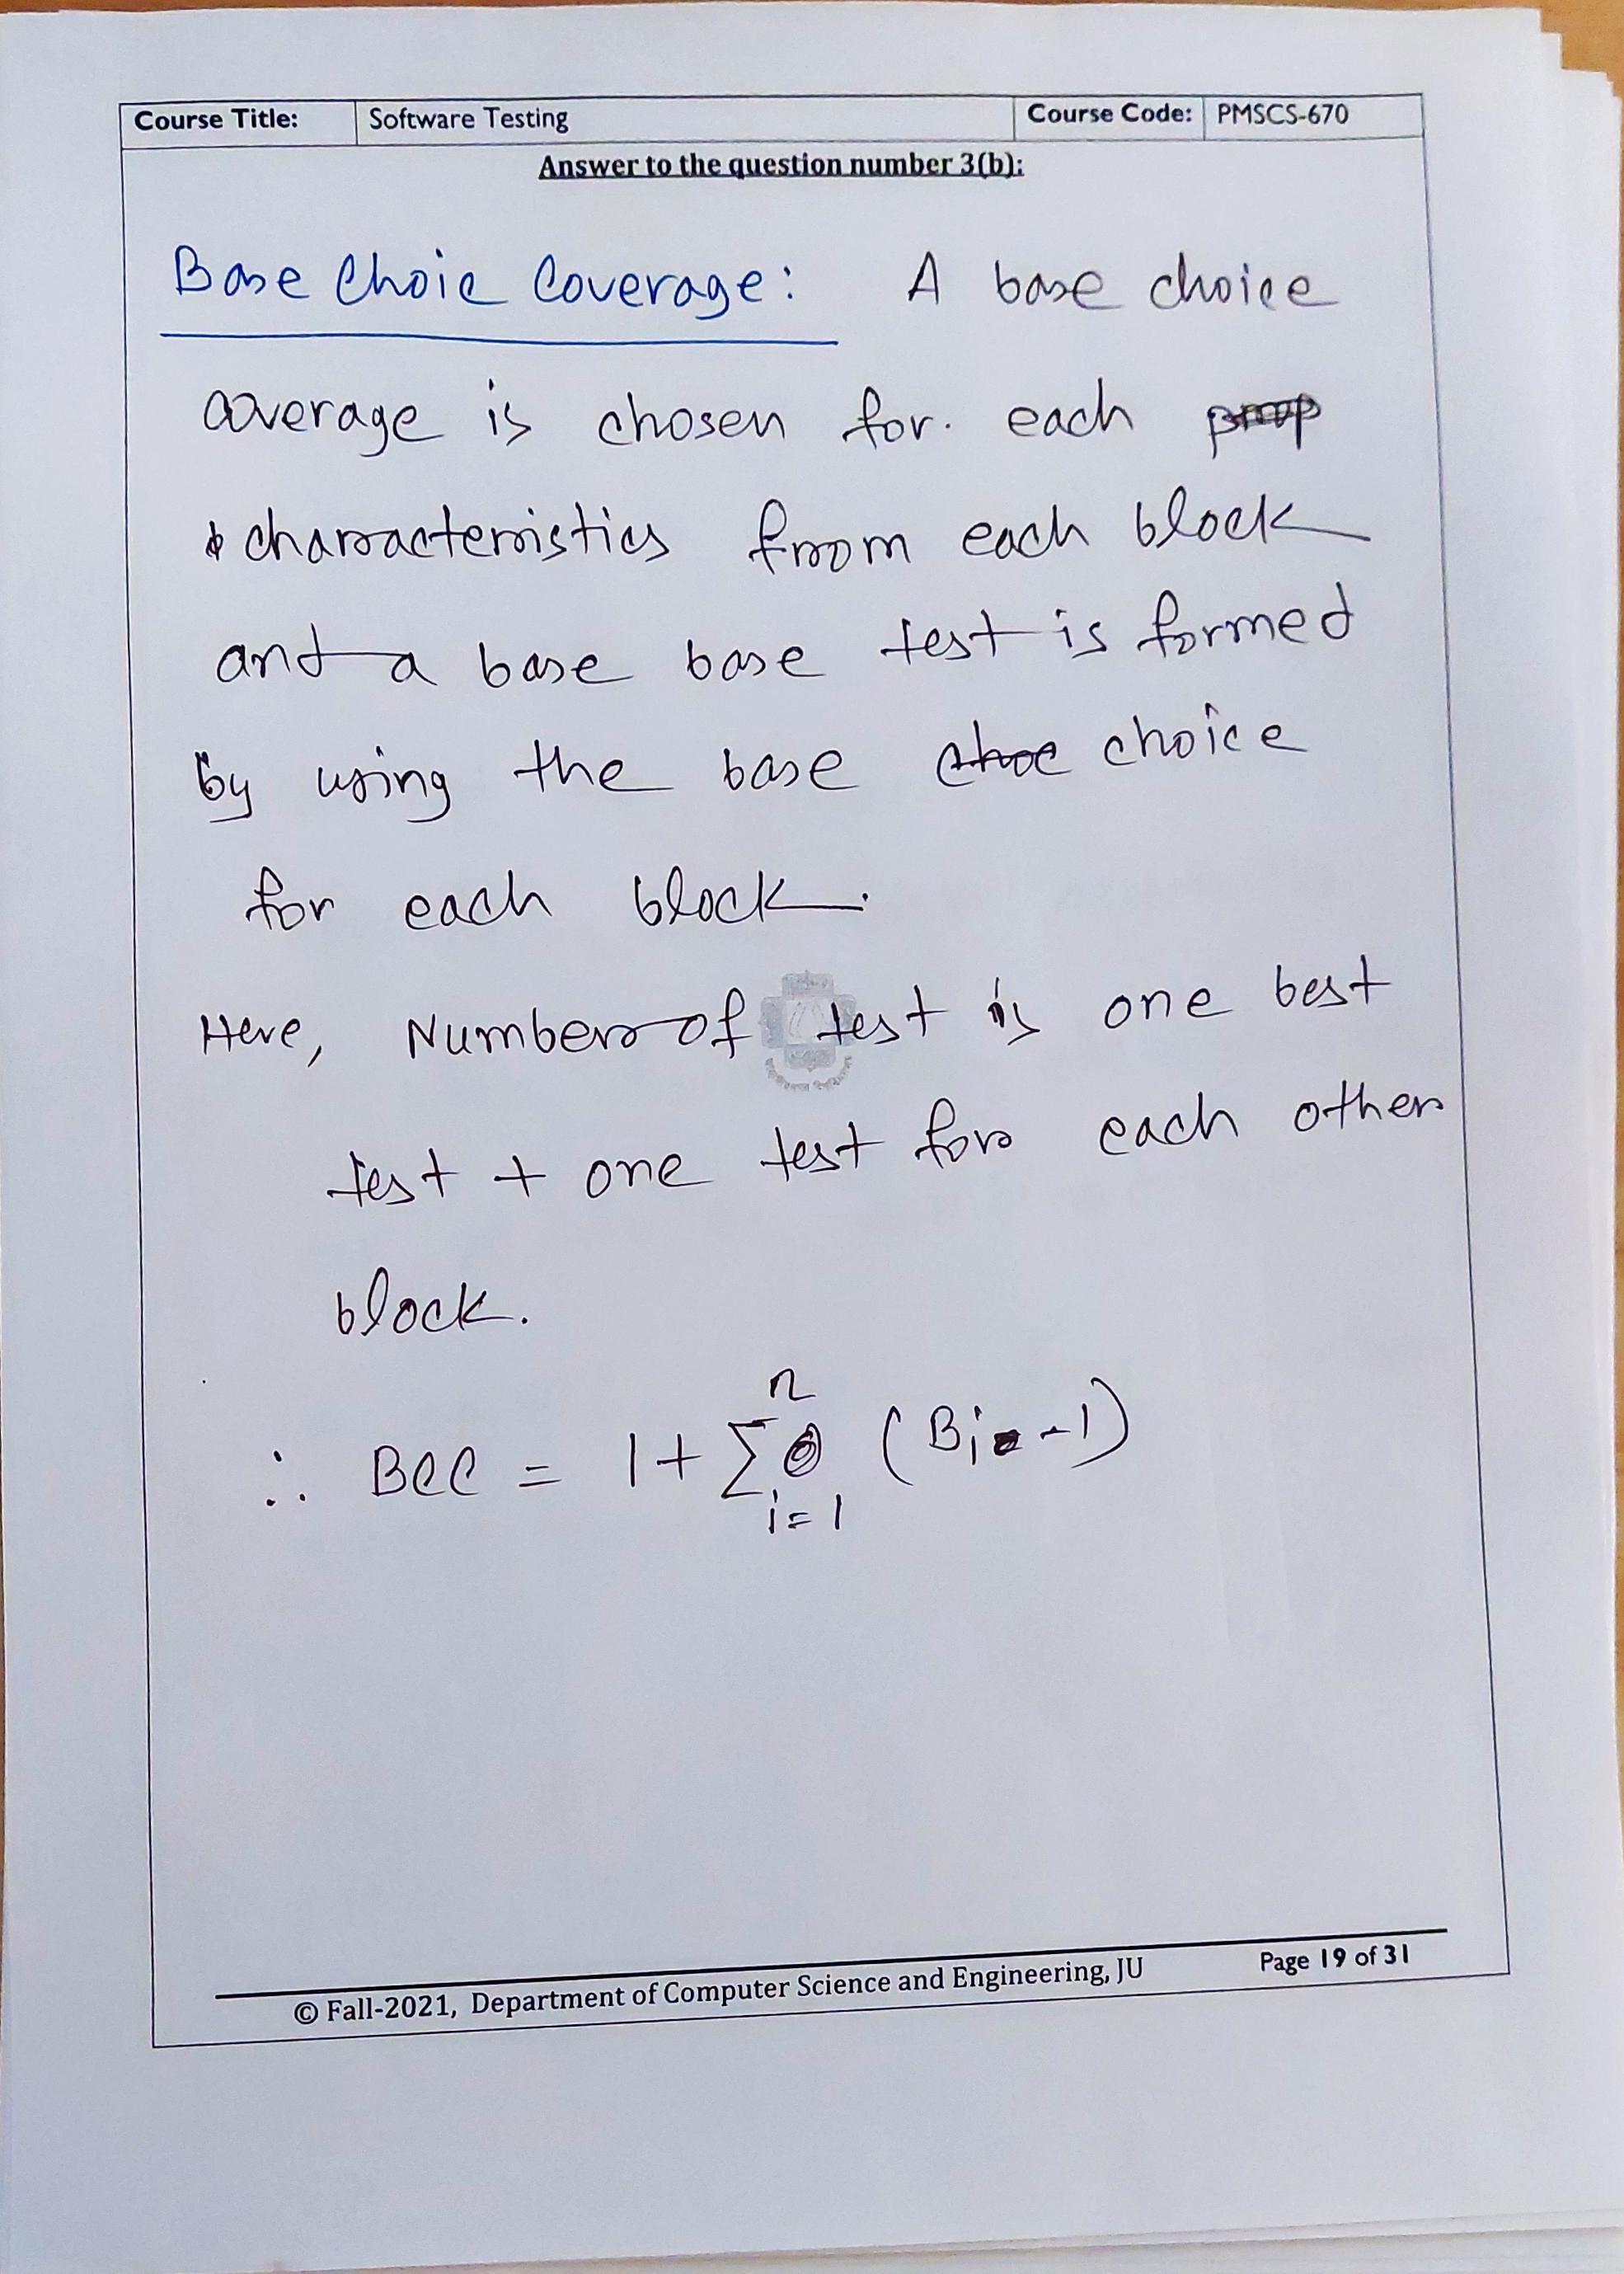 Course Title: Software Testing Course Code: PMSCS-670
Answer to the question number 3(b):
Base Choie Coverage: A base choice
coverage is chosen for. each
characteristics from each block
and a base base test is formed
by using the base choe choice
for each block.
Here, Number of test is one best
test + one test for each other
block.
∴ BCC = 1 + Σ (Bi - 1)
n
i = 1
© Fall-2021, Department of Computer Science and Engineering, JU Page 19 of 31